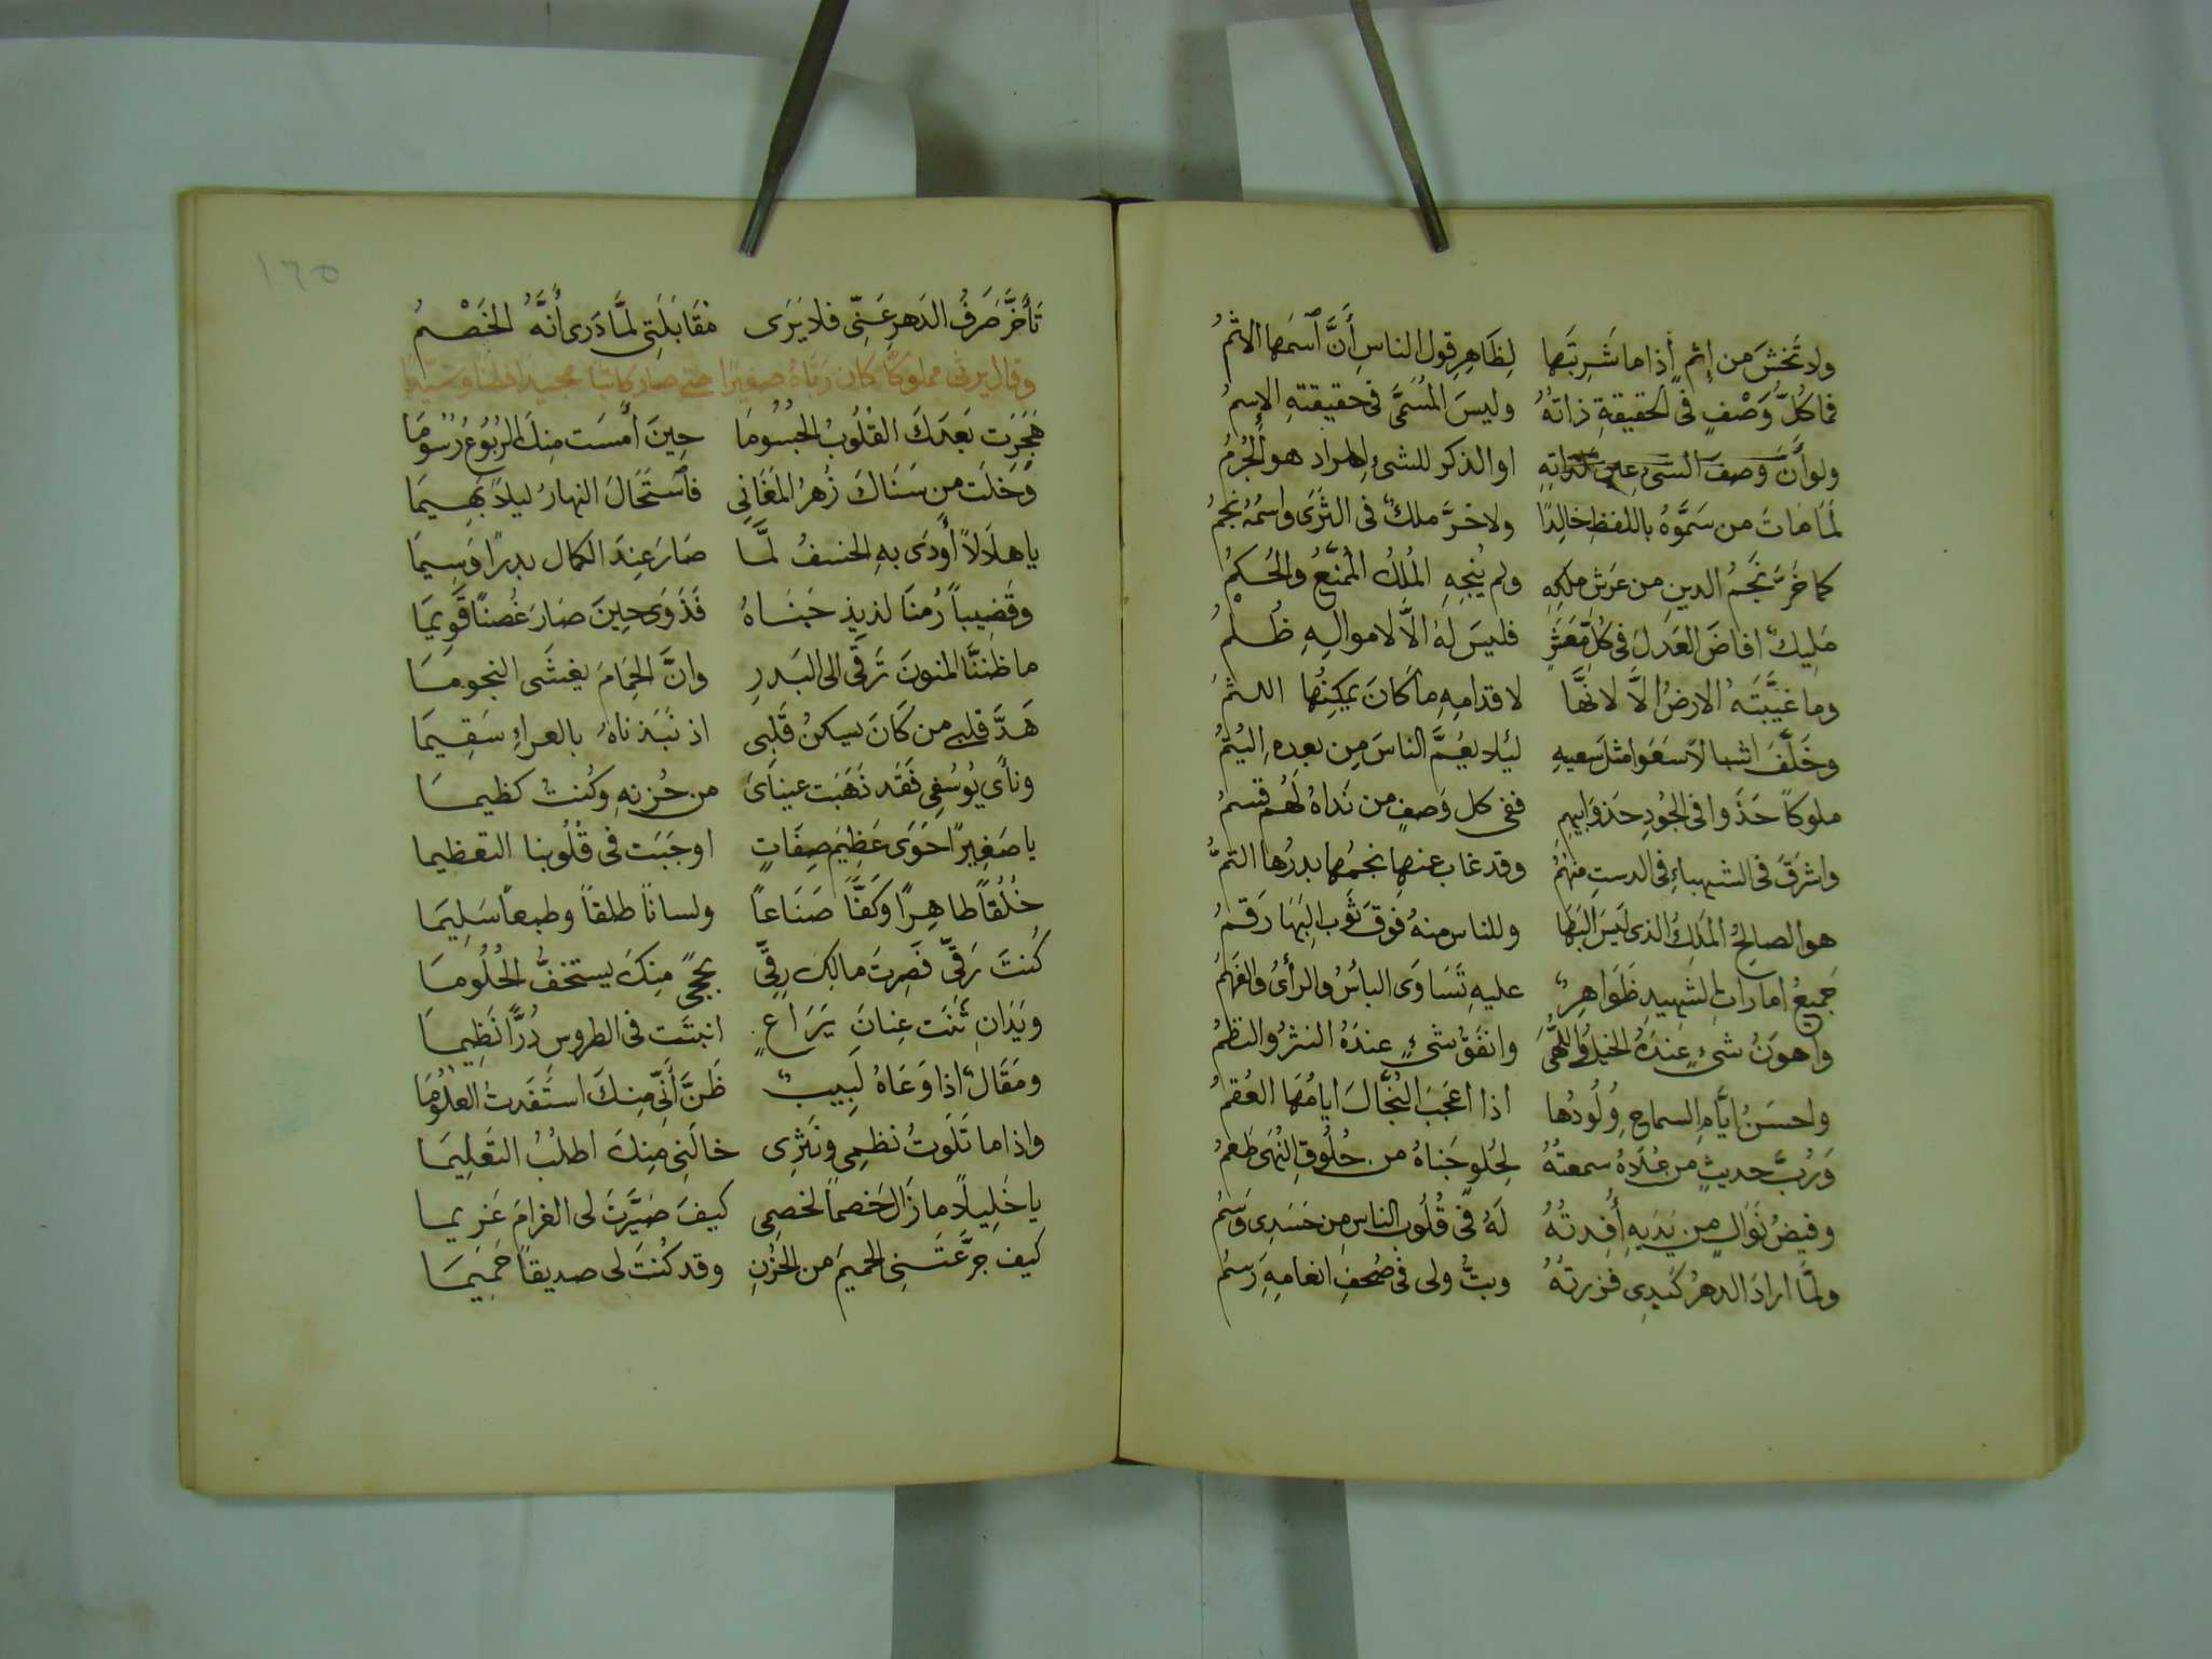 ولا تخشَ من إثمٍ إذا ما شَرِبتَها لِظَاهِرِ قول الناسِ أَنَّ ٱسمَها الاثمُ
فما كُلُّ وَصْفٍ في الحقيقةِ ذاتهُ وليسَ المُسَمَّى في حقيقتهِ الإسمُ
ولو أَنَّ وَصفَ الشئ عين لذاتِهِ او الذكر للشئِ المراد هو الجُرمُ
لَمَا ماتَ من سَمَّوهُ باللفظِ خالِدًا ولا خرَّ ملكٌ في الثَرَى واسمُهُ نجمُ
كما خَرَّ نَجمُ الدينِ من عَرشِ ملكِهِ ولم يُنجِهِ المُلكُ المُمَنَّعُ والحُكمُ
مَلِيكٌ افاضَ العَدلَ في كلِّ مَعشَرٍ فليسَ لهُ الّا لاموالِهِ ظُلمُ
وما غيَّبَتهُ الارضُ الَّا لانَّها لاقدامِهِ ما كَانَ يمكِنُها اللثمُ
وخَلَّفَ اشبالاً سَعَوا مثلَ سَعيهِ ليُلا يعُمَّ الناسَ مِن بعدهِ اليُتمُ
ملوكاً حَذَوا في الجُودِ حَذوَ ابيهمِ ففي كل وَصفٍ من نَداهُ لَهُم قسمُ
واشرَقَ في الشهباءِ في الدستِ منهُمُ وقد غاب عنها نجمُها بدرُها التمُّ
هو الصالحُ المَلِكُ الذي لَبِسَ البَهَا وللناس منهُ فوقَ ثَوبِ البَهَا رَقمُ
جَمِيعُ اماراتِ الشهيدِ ظَوَاهِرٌ عليهِ تَسَاوَى البأسُ والرأىُ والفَهمُ
واهوَنُ شئٍ عِندَهُ الخيلُ واللُّهَى وانفَقُ شئٍ عندَهُ النثرُ والنظمُ
واحسَنُ ايَّامِ السماحِ وَلُودُها اذا اعجَبَ البُخَّالَ ايامُها العُقمُ
وَرُبَّ حديثٍ من عُلَاهُ سمعتُهُ لِحُلوِ جَناهُ من حُلوقِ النُهَى طَعمُ
وفيضُ نَوَالٍ مِن يَدَيهِ أُفِدتُهُ لَهُ في قُلُوبِ الناسِ مِن حَسَدى وَسمُ
ولمَّا ارادَ الدهرُ كَيدِي فزرتُهُ وبتُّ ولى في صُحفِ انعامِهِ رَسمُ
١٦٥
تَأَخَّرَ صَرفُ الدَهرِ عَنِّي فلا يَرَى مُقَابَلَتي لمَّا دَرى أَنَّهُ الخَصْمُ
وقال يرثي مملوكاً كان ربّاهُ صغيرًا حتى صار كاتبا مجيدا فطنا
هَجَرَت بَعدَكَ القُلُوبُ الجُسُومَا حِينَ أَمسَت مِنكَ الرُبُوعُ رُسُومَا
وَخَلَت من سَنَاكَ زُهرُ المَغَانى فٱستَحَالَ النهارُ ليلاً بَهِيمَا
يا هلَالاً أَودَى بهِ الخسفُ لمَّا صَارَ عِندَ الكمال بدرًا وَسِيمَا
وقَضِيباً رُمنَا لذيذ جَنَاهُ فَذَوَى حِينَ صَارَ غُصنًا قَوِيمَا
ما ظَننَّا المنونَ تَرقَى الى البَدرِ وانَّ الحِمَامَ يغشَى النجومَا
هَدَّ قلبي من كَانَ يسكنُ قَلبى اذ نَبَذناهُ بالعراءِ سَقِيمَا
ونأَى يُوسُفِى فَقَد ذَهَبَت عينايَ من حُزنهِ وكُنتُ كظيمَا
يا صَغِيرًا حَوَى عَظِيمَ صِفَاتٍ اوجَبَت في قُلُوبنا التعظيما
خُلُقًا طاهِرًا وكَفًّا صَنَاعاً ولسانًا طلقاً وطبعاً سَلِيمَا
كُنتَ رِقِّي فَصِرتَ مالِكَ رِقِّى بحِجىً مِنكَ يستخفُّ الحُلُومَا
وَيَدَانِ ثَنَت عِنانَ يَرَاعٍ انبتَت في الطروس دُرًّا نَظِيمَا
ومَقَالٌ اذا وَعَاهُ لَبِيبٌ ظَنَّ أَنِّي مِنكَ استَفَدتُ العلُومَا
واذا ما تَلَوتُ نظمِى ونَثرِى خالَنِى مِنكَ اطلُبُ التعَلِيمَا
يا خَلِيلاً ما زَالَ خَصماً لخصمِى كيفَ صَيَّرتَ لى الغرامَ غَرِيما
كيف جرَّعتَنِى الحميمَ من الحُزنِ وقد كُنتَ لى صديقاً حَمِيمَا